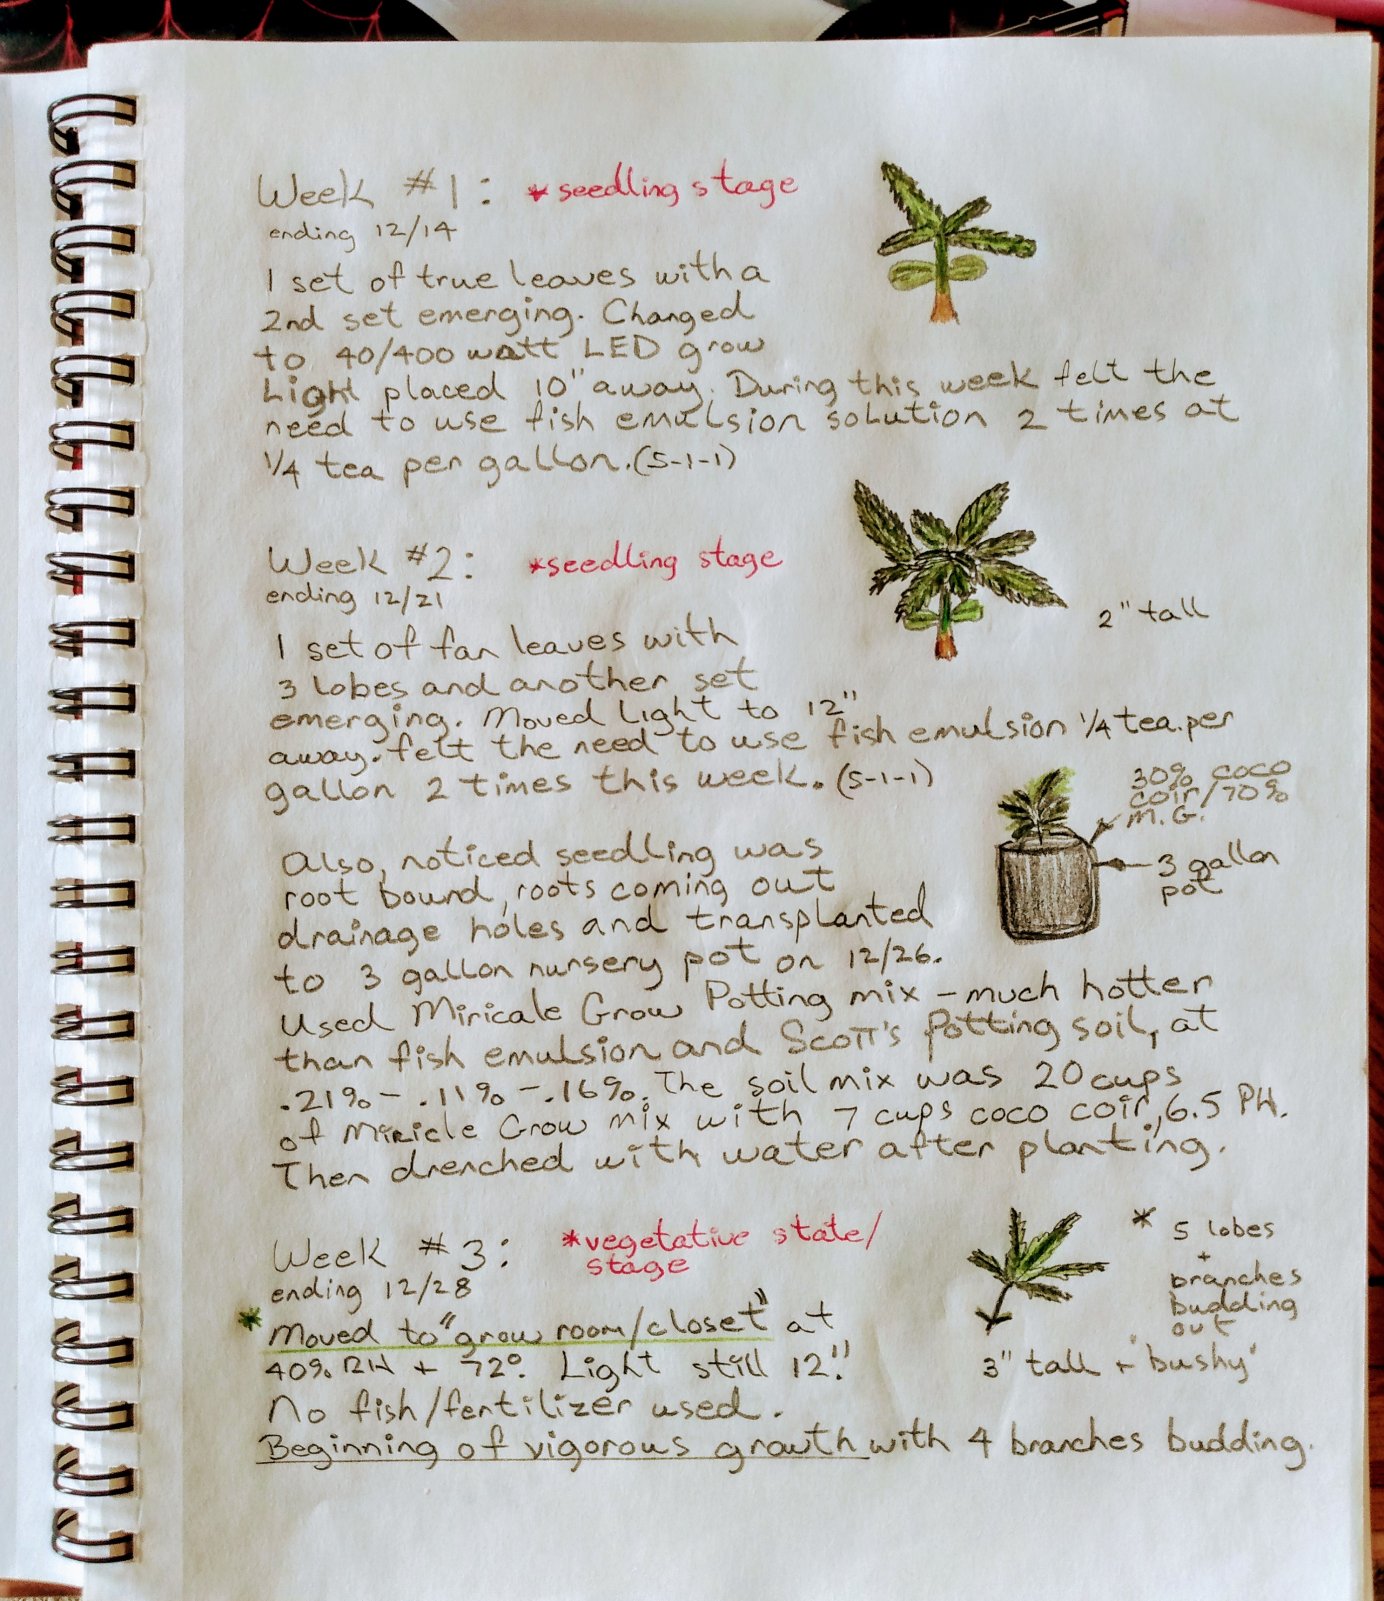 Week #1: *seedling stage
ending 12/14
1 set of true leaves with a
2nd set emerging. Changed
to 40/400 watt LED grow
Light placed 10" away. During this week felt the
need to use fish emulsion solution 2 times at
1/4 tea per gallon. (5-1-1)
Week #2: *seedling stage
ending 12/21
2" tall
1 set of fan leaves with
3 lobes and another set
emerging. Moved Light to 12"
away. felt the need to use fish emulsion 1/4 tea. per
gallon 2 times this week. (5-1-1)
30% coco
coir/70%
M.G.
3 gallon
pot
Also, noticed seedling was
root bound, roots coming out
drainage holes and transplanted
to 3 gallon nursery pot on 12/26.
Used Miricale Grow Potting mix - much hotter
than fish emulsion and Scott's Potting soil, at
.21% - .11% - .16%. The soil mix was 20 cups
of Miricle Grow mix with 7 cups coco coir, 6.5 PH.
Then drenched with water after planting.
Week #3: *vegetative state/
stage
ending 12/28
* 5 lobes
+
branches
budding
out
3" tall + "bushy"
* Moved to "grow room/closet" at
40% RH + 72°. Light still 12".
No fish/fertilizer used.
Beginning of vigorous growth with 4 branches budding.